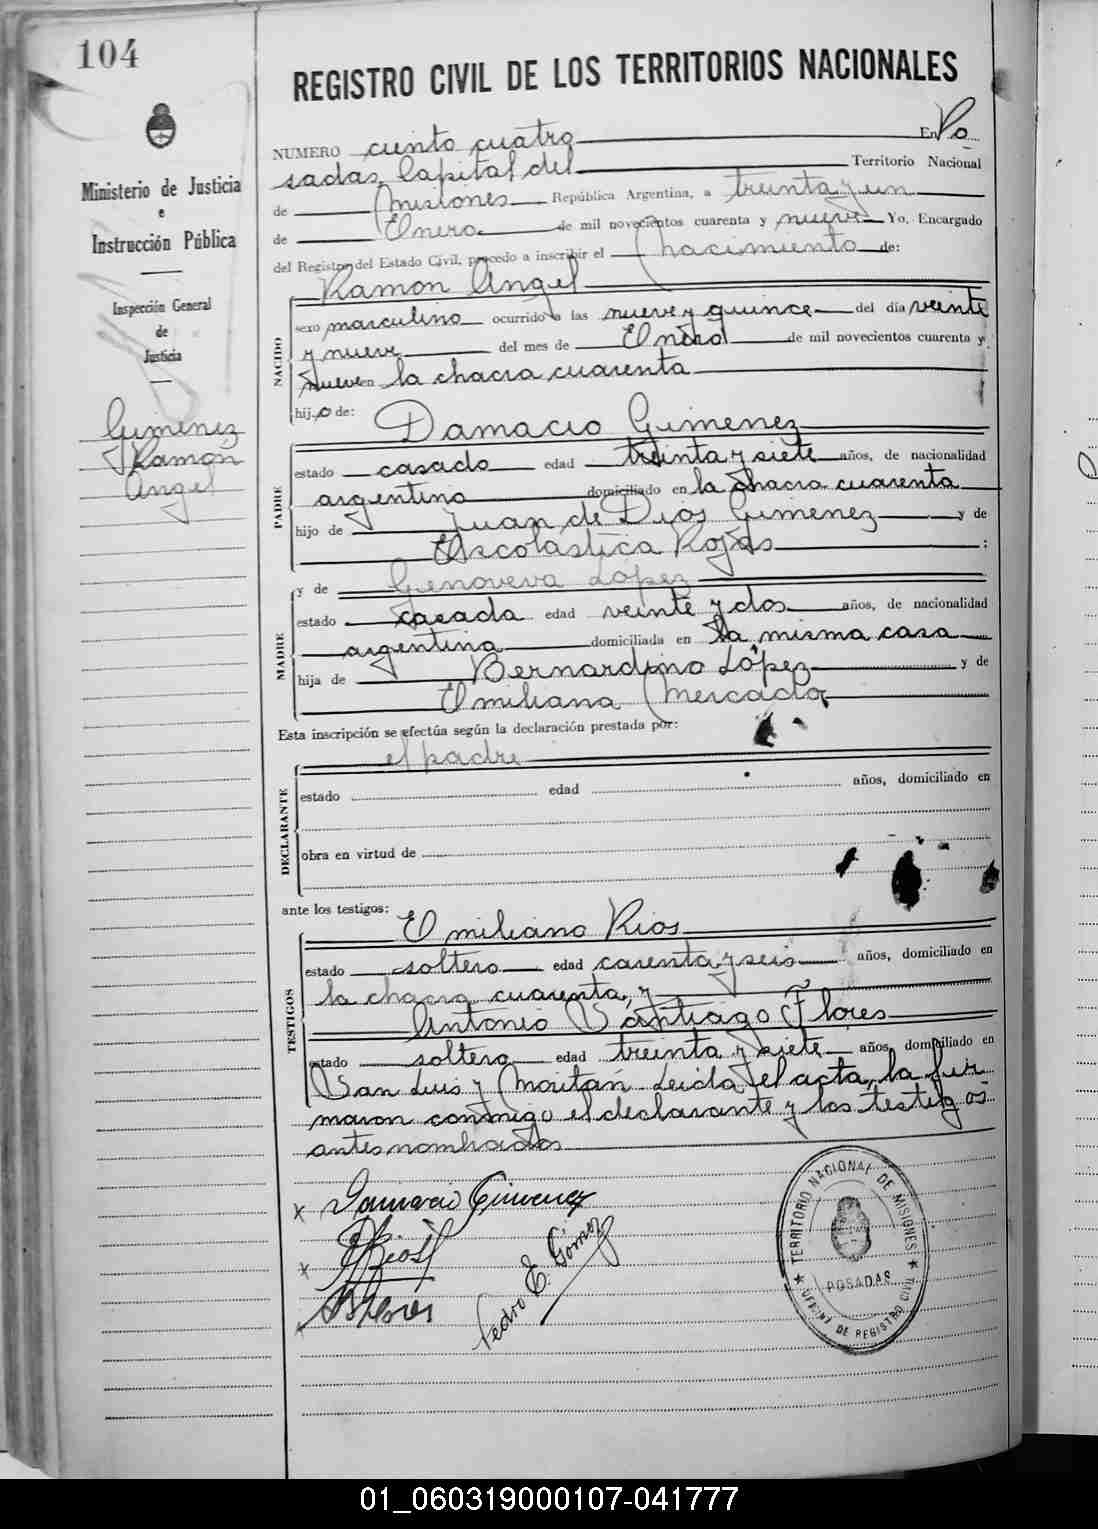 104
REGISTRO CIVIL DE LOS TERRITORIOS NACIONALES
Ministerio de Justicia
e
Instrucción Pública
Inspección General
de
Justicia
Gimenez
Ramón
Angel
NUMERO ciento cuatro En Po
sadas, Capital del Territorio Nacional
de Misiones República Argentina, a treinta y un
de Enero de mil novecientos cuarenta y nueve Yo, Encargado
del Registro del Estado Civil, procedo a inscribir el nacimiento de:
Ramon Angel
NACIDO
sexo masculino ocurrido a las nueve y quince del día veinti
y nueve del mes de Enero de mil novecientos cuarenta y
nueve en la chacra cuarenta
hijo de: Damacio Gimenez
PADRE
estado casado edad treinta y siete años, de nacionalidad
argentina domiciliado en la chacra cuarenta
hijo de Juan de Dios Gimenez y de
Escolástica Rojas :
y de Genoveva López
MADRE
estado casada edad veinte y dos años, de nacionalidad
argentina domiciliada en la misma casa
hija de Bernardino López y de
Emiliana Mercado
Esta inscripción se efectúa según la declaración prestada por:
el padre
DECLARANTE
estado edad años, domiciliado en
obra en virtud de
ante los testigos:
Emiliano Rios
TESTIGOS
estado soltero edad carenta y seis años, domiciliado en
la chacra cuarenta, y
Antonio Santiago Flores
estado soltero edad treinta y siete años, domiciliado en
San Luis y Moritán Leida el acta, la fir
maron conmigo el declarante y los testigos
antes nombrados
x Damacio Gimenez
x Rios
x Flores
Pedro E. Gómez
TERRITORIO NACIONAL DE MISIONES
POSADAS
OFICINA DE REGISTRO CIVIL
01_060319000107-041777